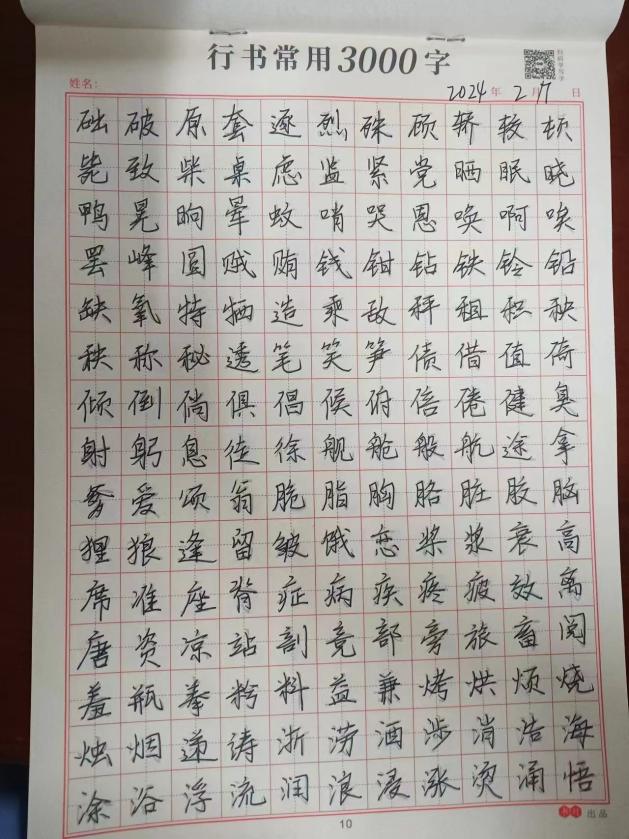 行书常用3000字
扫码学写字
姓名： 2024年2月7日
础破原套逐烈殊顾轿较顿
毙致柴桌虑监紧党晒眠晓
鸭晃晌晕蚊哨哭恩唤啊唉
罢峰圆贼贿钱钳钻铁铃铅
缺氧特牺造乘敌秤租积秧
秩称秘透笔笑笋债借值倚
倾倒倘俱倡候俯倍倦健臭
射躬息徒徐舰舱般航途拿
爹爱颂翁脆脂胸胳脏胶脑
狸狼逢留皱饿恋桨浆衰高
席准座脊症病疾疼疲效离
唐资凉站剖竞部旁旅畜阅
羞瓶拳粉料益兼烤烘烦烧
烛烟递涛浙涝酒涉消浩海
涂浴浮流润浪浸涨烫涌悟
10
出品